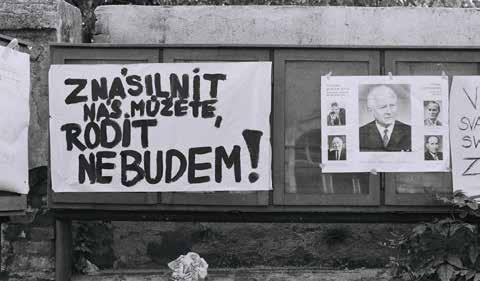 ZNÁSILNIT
NÁS MŮŽETE,
RODIT
NEBUDEM!
V
SVA
SW
Z